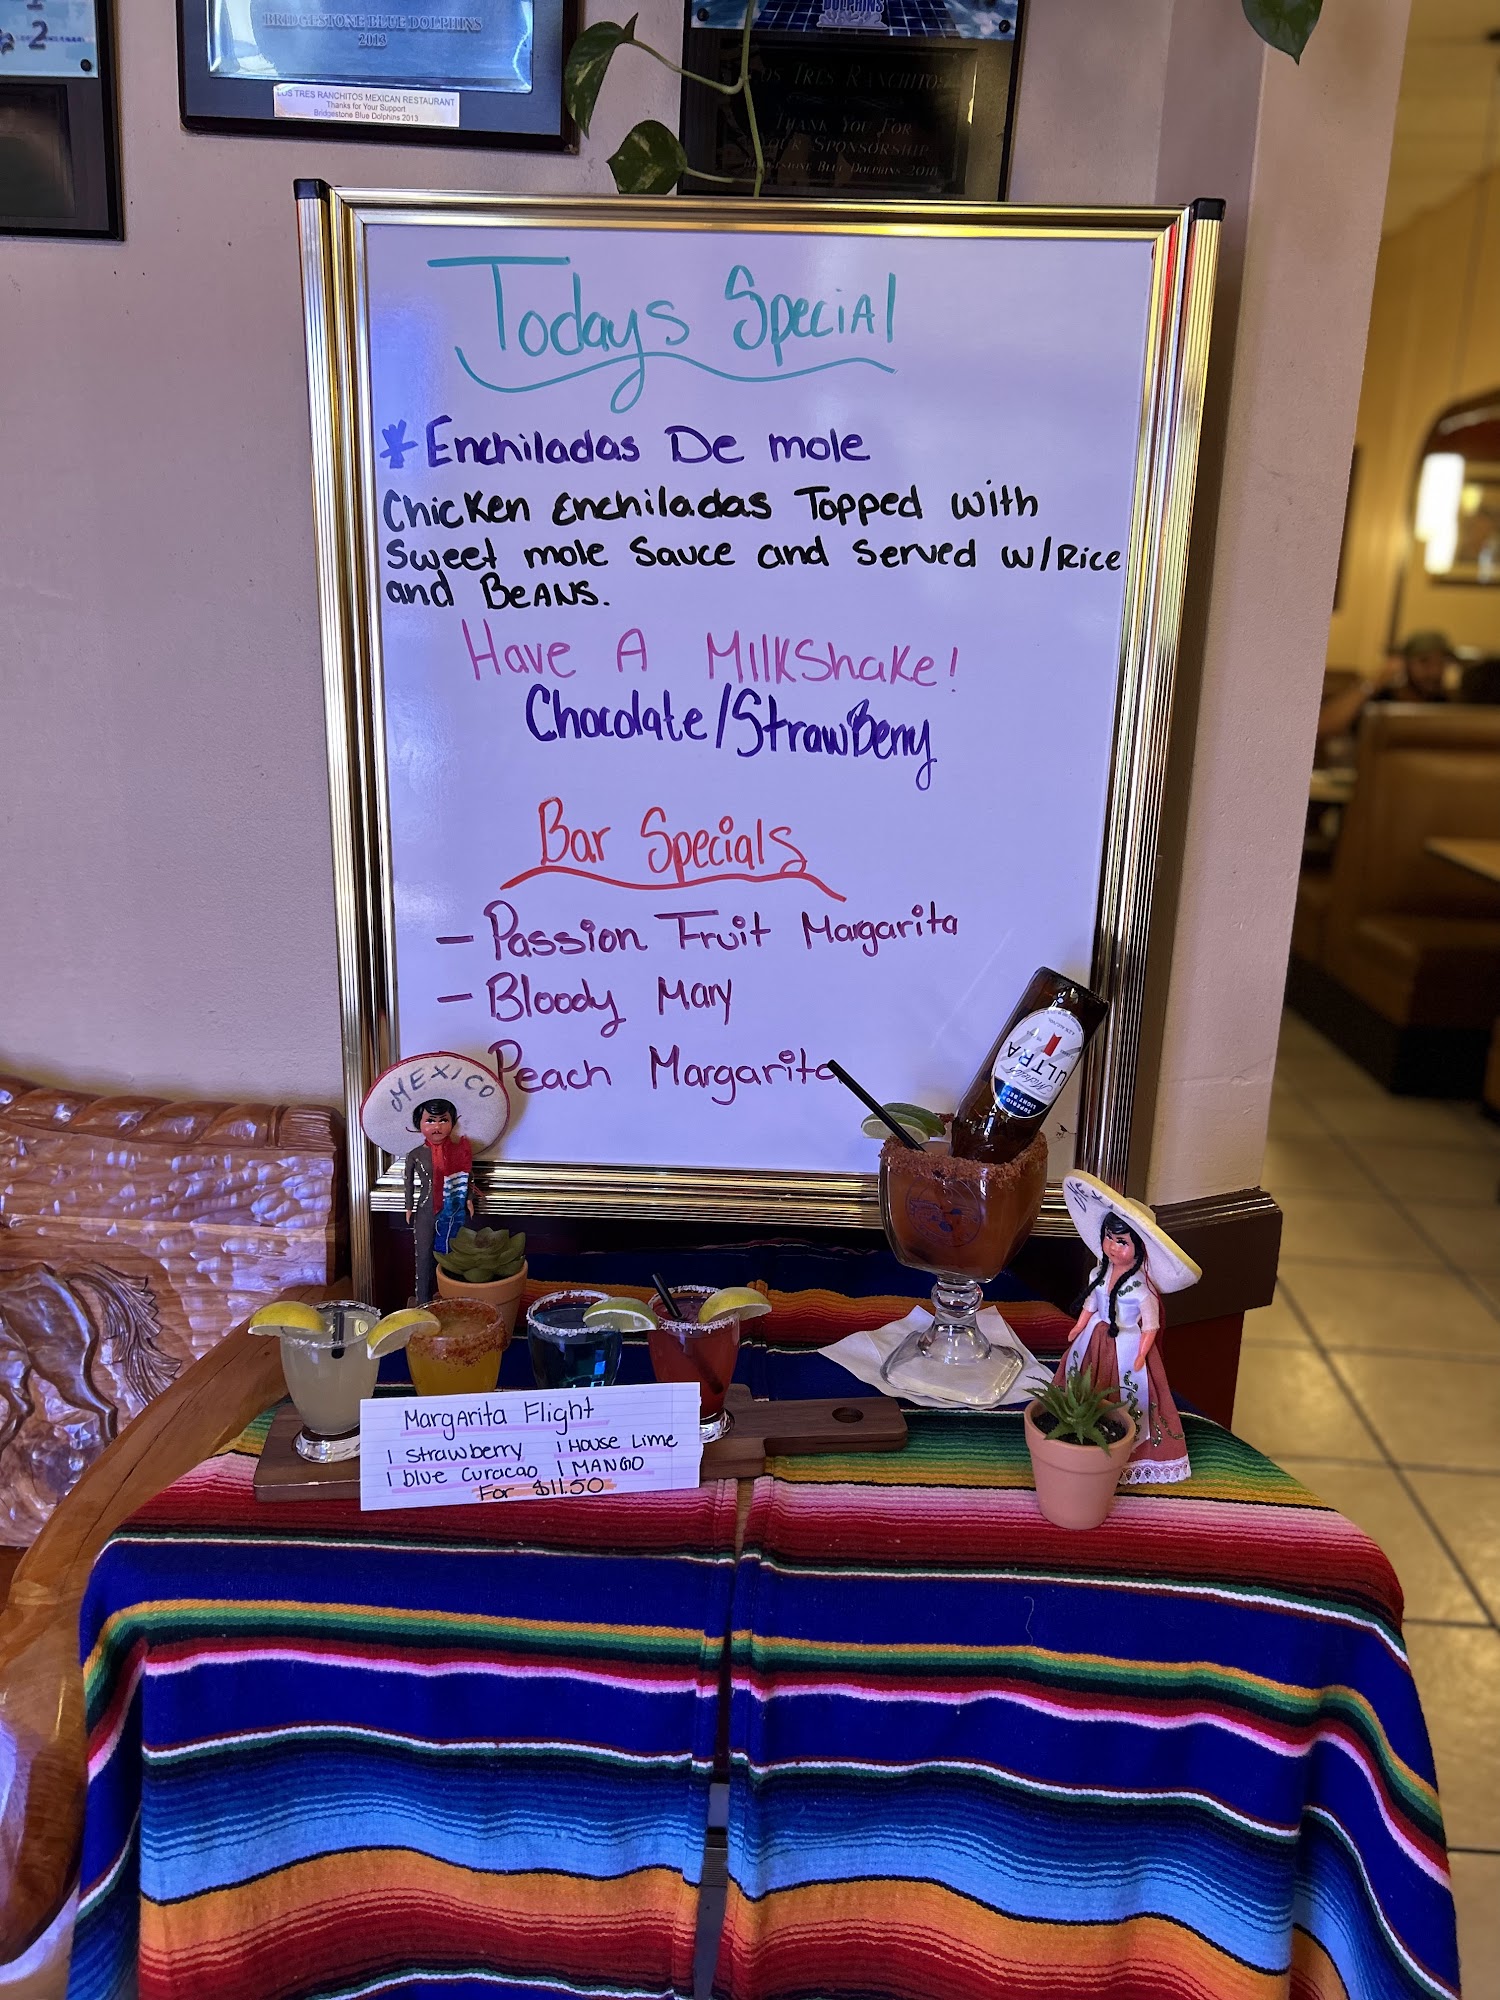 DOLPHINS
BRIDGESTONE BLUE DOLPHINS
2013
LOS TRES RANCHITOS MEXICAN RESTAURANT
Thanks for Your Support
Bridgestone Blue Dolphins 2013
LOS TRES RANCHITOS
THANK YOU FOR
YOUR SPONSORSHIP
BRIDGESTONE BLUE DOLPHINS 2018
Todays Special
*Enchiladas De mole
Chicken Enchiladas Topped with
sweet mole sauce and served w/Rice
and BeANS.
Have A MilkShake!
Chocolate/StrawBerry
Bar Specials
- Passion Fruit Margarita
- Bloody Mary
Peach Margarita
MEXICO
ULTRA
Margarita Flight
1 strawberry 1 House Lime
1 blue Curacao 1 MANGO
For $11.50